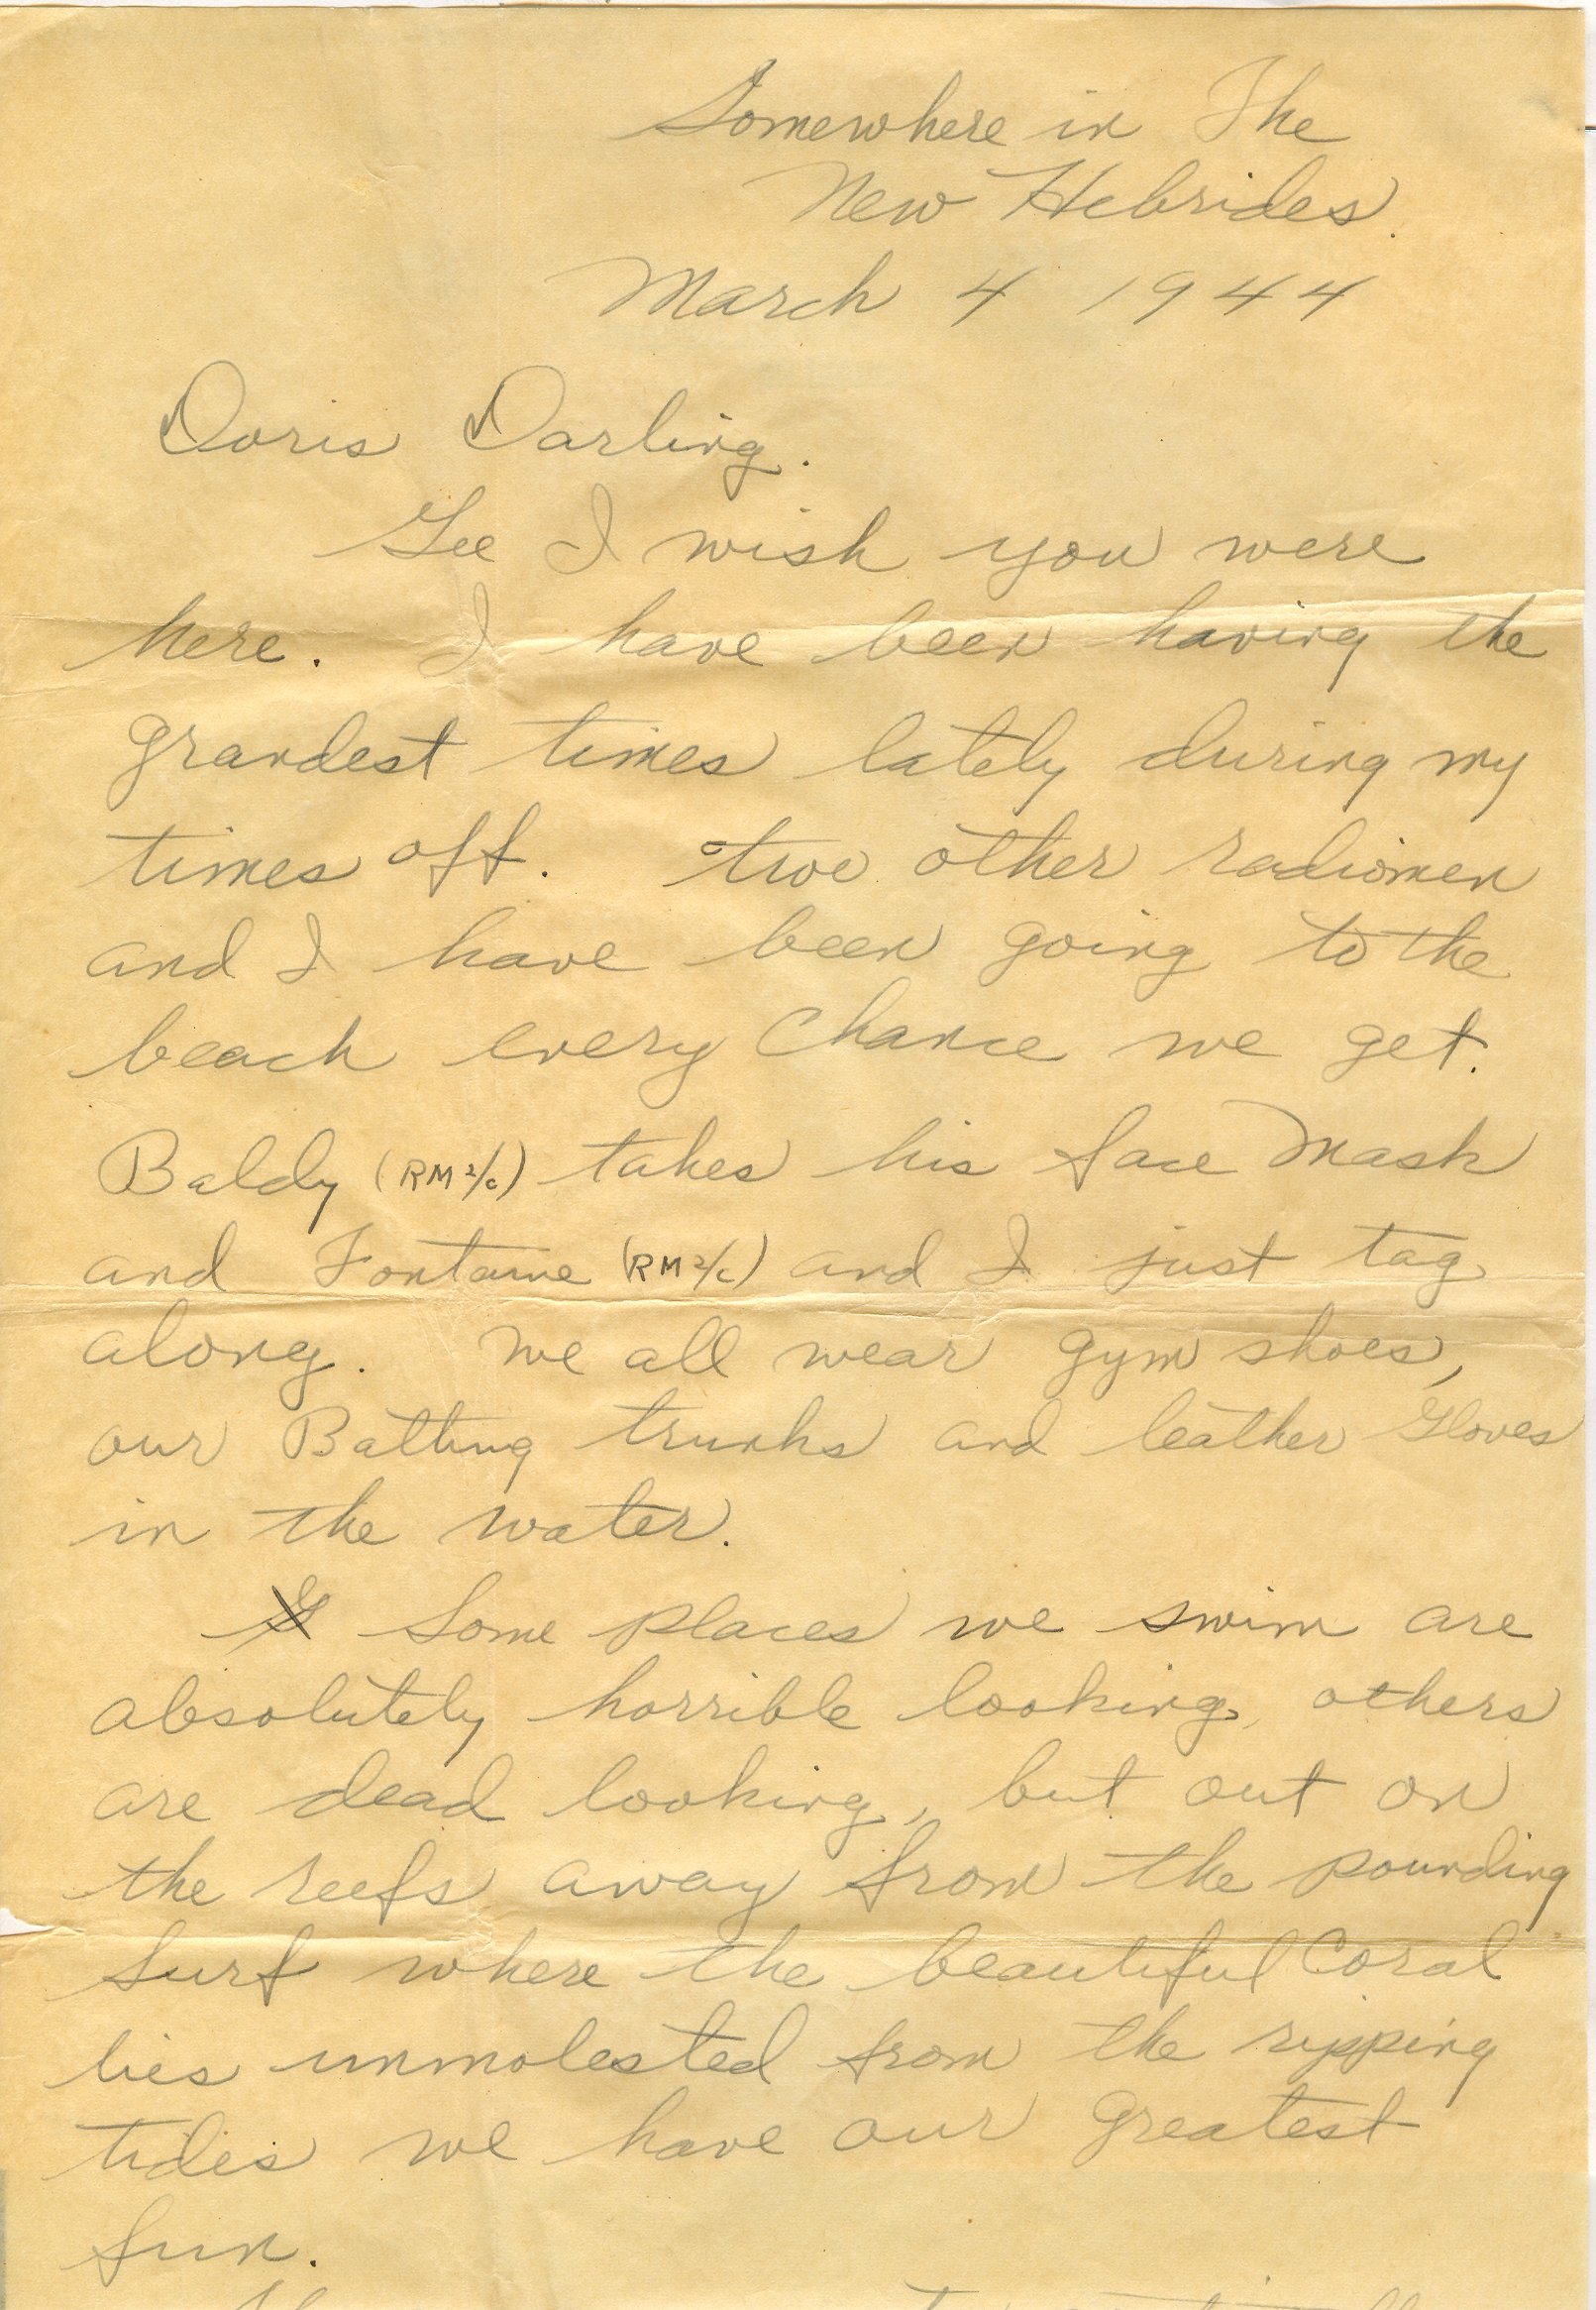 Somewhere in The
New Hebrides.
March 4 1944
Doris Darling.
Gee I wish you were
here. I have been having the
grandest times lately during my
times off. two other radiomen
and I have been going to the
beach every Chance we get.
Baldy (RM 2/c) takes his face Mask
and Fontaine (RM 2/c) and I just tag
along. we all wear gym shoes,
our Bathing trunks and leather Gloves
in the water.
Some places we swim are
absolutely horrible looking, others
are dead looking, but out on
the reefs away from the pounding
surf where the beautiful Coral
lies unmolested from the ripping
tides we have our greatest
fun.